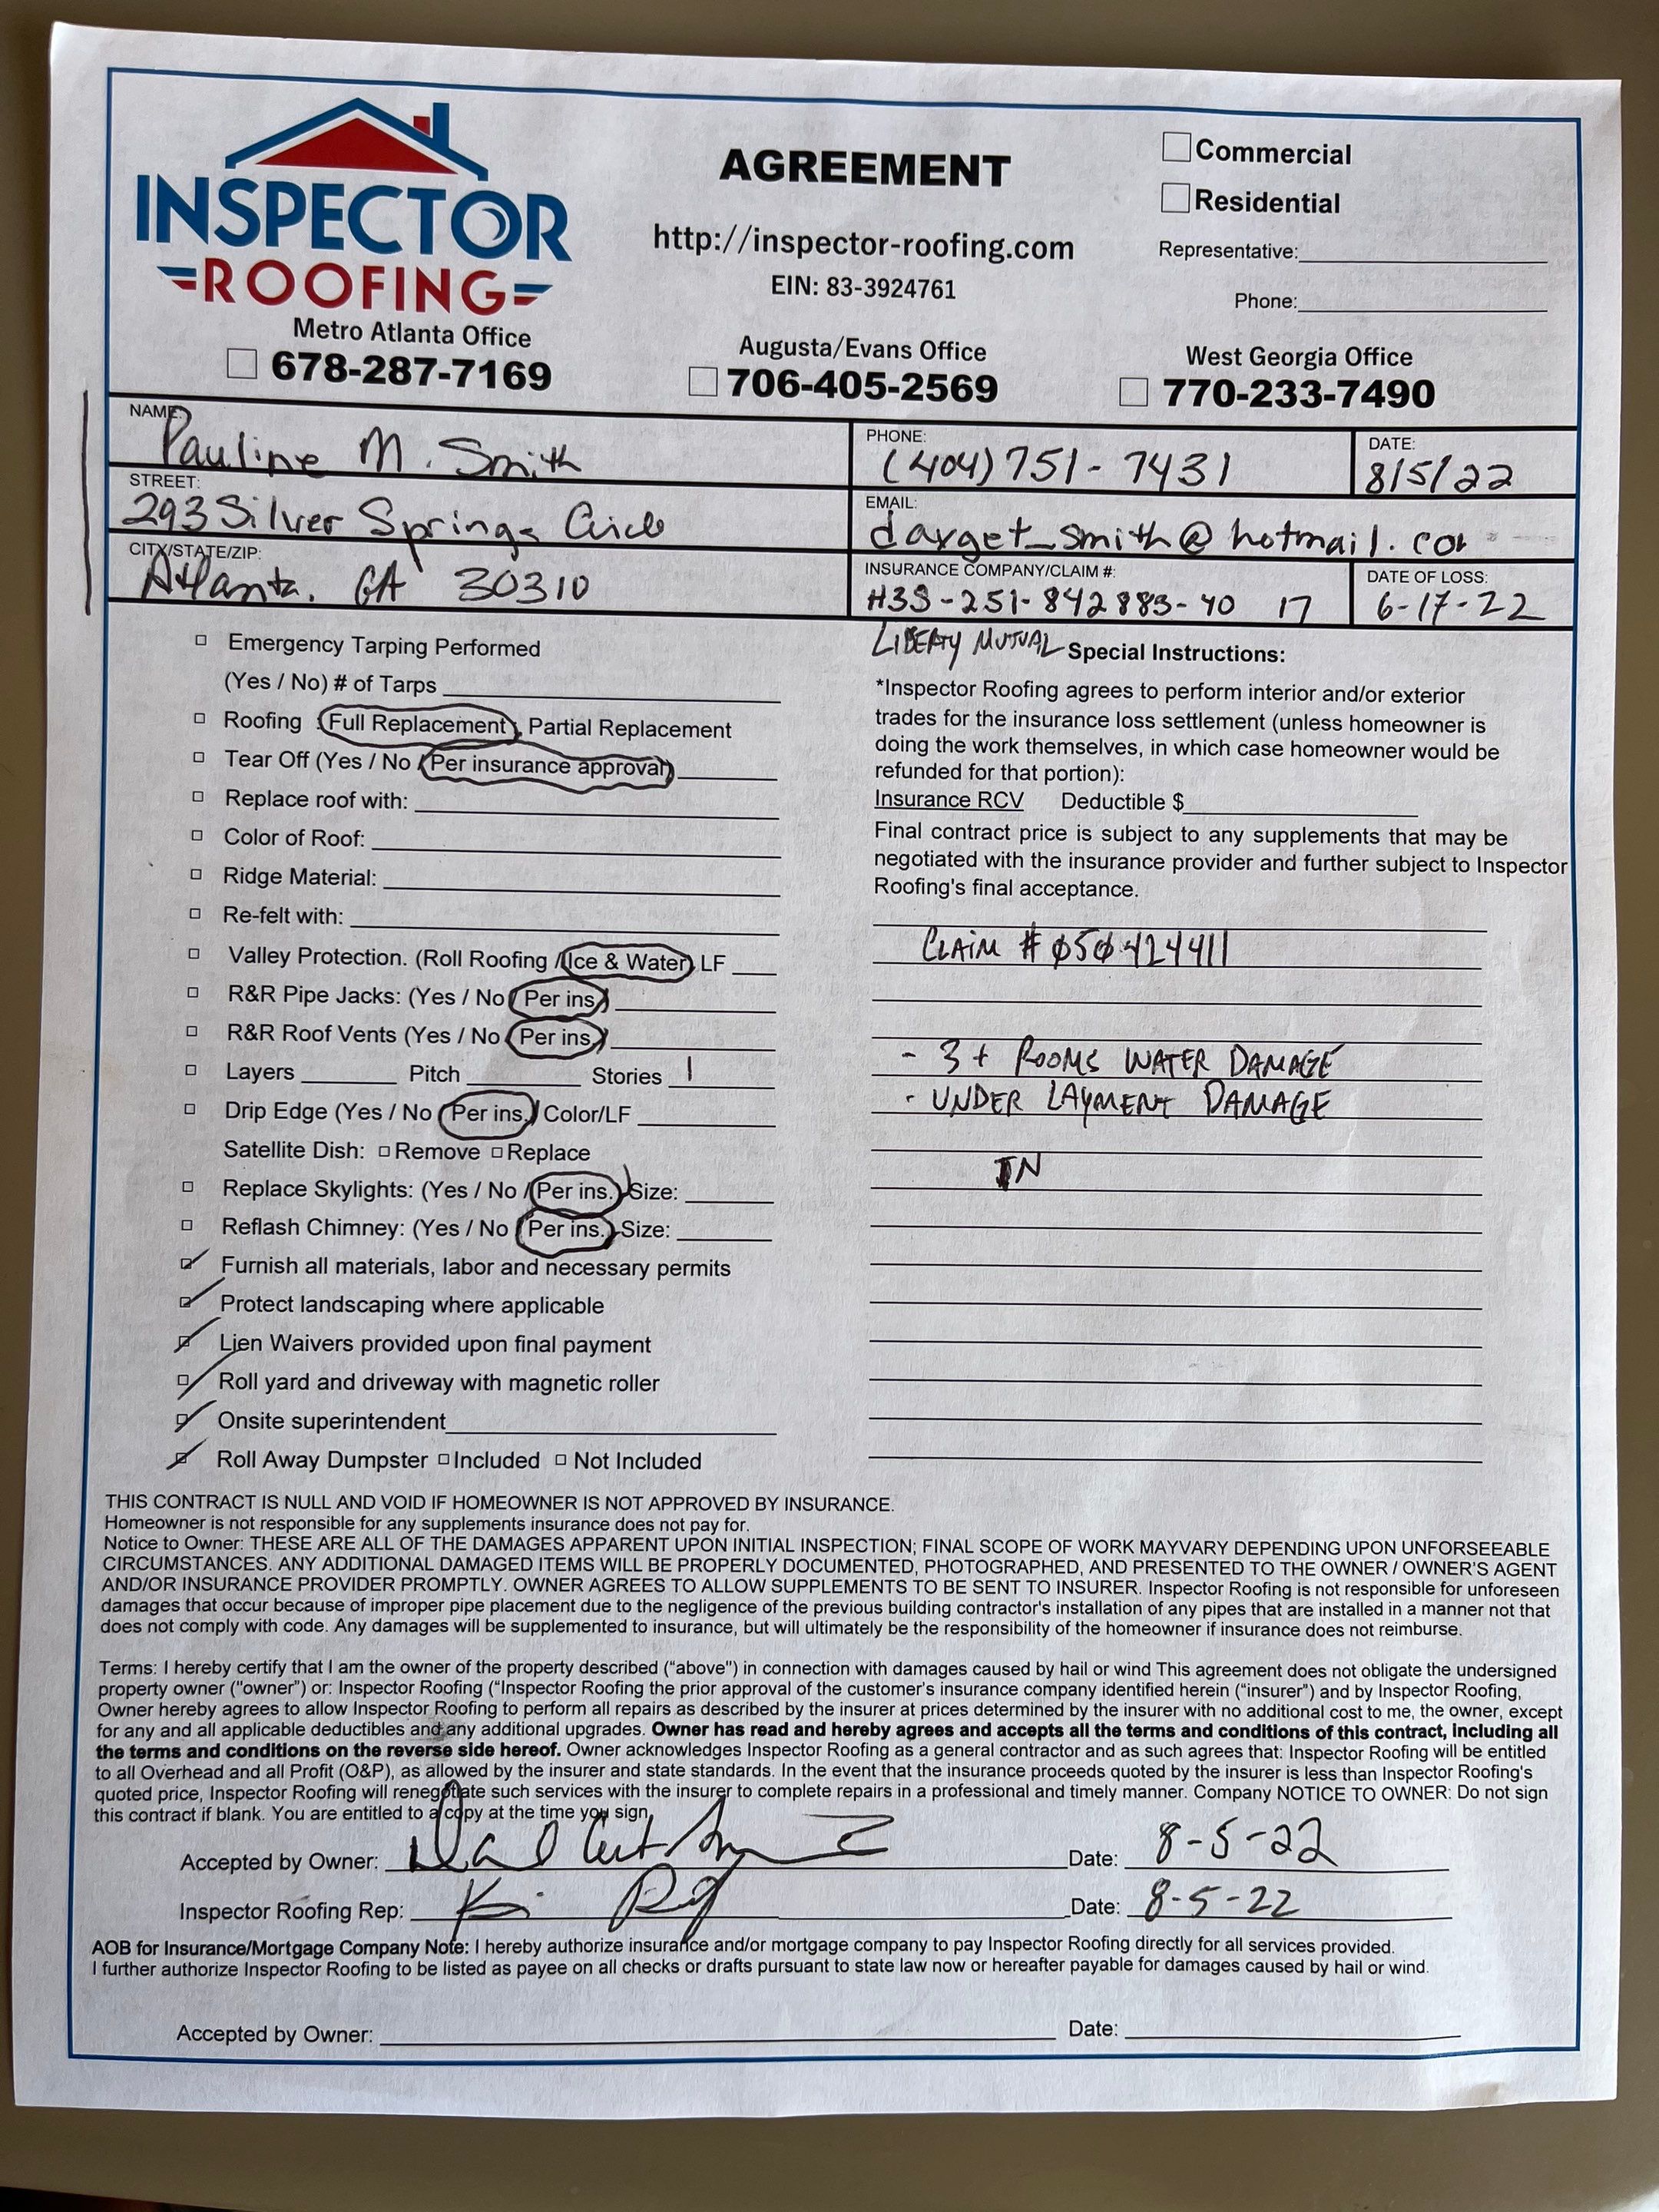 INSPECTOR
ROOFING
AGREEMENT
http://inspector-roofing.com
EIN: 83-3924761
Commercial
Residential
Representative:
Phone:
Metro Atlanta Office
678-287-7169
Augusta/Evans Office
706-405-2569
West Georgia Office
770-233-7490
NAME:
Pauline M. Smith
PHONE:
(404) 751-7431
DATE:
8/5/22
STREET:
293 Silver Springs Circle
EMAIL:
darget_smith@hotmail.com
CITY/STATE/ZIP:
Atlanta, GA 30310
INSURANCE COMPANY/CLAIM #:
H3S-251-842883-40 17
DATE OF LOSS:
6-17-22
LIBERTY MUTUAL
Emergency Tarping Performed
(Yes / No) # of Tarps
Roofing (Full Replacement), Partial Replacement
Tear Off (Yes / No / Per insurance approval)
Replace roof with:
Color of Roof:
Ridge Material:
Re-felt with:
Valley Protection. (Roll Roofing / Ice & Water) LF
R&R Pipe Jacks: (Yes / No / Per ins.)
R&R Roof Vents (Yes / No / Per ins.)
Layers Pitch Stories 1
Drip Edge (Yes / No / Per ins.) Color/LF
Satellite Dish: Remove Replace
Replace Skylights: (Yes / No / Per ins.) Size:
Reflash Chimney: (Yes / No / Per ins.) Size:
Furnish all materials, labor and necessary permits
Protect landscaping where applicable
Lien Waivers provided upon final payment
Roll yard and driveway with magnetic roller
Onsite superintendent
Roll Away Dumpster Included Not Included
Special Instructions:
*Inspector Roofing agrees to perform interior and/or exterior
trades for the insurance loss settlement (unless homeowner is
doing the work themselves, in which case homeowner would be
refunded for that portion):
Insurance RCV Deductible $
Final contract price is subject to any supplements that may be
negotiated with the insurance provider and further subject to Inspector
Roofing's final acceptance.
CLAIM # 050424411
- 3+ ROOMS WATER DAMAGE
- UNDER LAYMENT DAMAGE
IN
THIS CONTRACT IS NULL AND VOID IF HOMEOWNER IS NOT APPROVED BY INSURANCE.
Homeowner is not responsible for any supplements insurance does not pay for.
Notice to Owner: THESE ARE ALL OF THE DAMAGES APPARENT UPON INITIAL INSPECTION; FINAL SCOPE OF WORK MAYVARY DEPENDING UPON UNFORSEEABLE
CIRCUMSTANCES. ANY ADDITIONAL DAMAGED ITEMS WILL BE PROPERLY DOCUMENTED, PHOTOGRAPHED, AND PRESENTED TO THE OWNER / OWNER'S AGENT
AND/OR INSURANCE PROVIDER PROMPTLY. OWNER AGREES TO ALLOW SUPPLEMENTS TO BE SENT TO INSURER. Inspector Roofing is not responsible for unforeseen
damages that occur because of improper pipe placement due to the negligence of the previous building contractor's installation of any pipes that are installed in a manner not that
does not comply with code. Any damages will be supplemented to insurance, but will ultimately be the responsibility of the homeowner if insurance does not reimburse.
Terms: I hereby certify that I am the owner of the property described ("above") in connection with damages caused by hail or wind This agreement does not obligate the undersigned
property owner ("owner") or: Inspector Roofing ("Inspector Roofing the prior approval of the customer's insurance company identified herein ("insurer") and by Inspector Roofing,
Owner hereby agrees to allow Inspector Roofing to perform all repairs as described by the insurer at prices determined by the insurer with no additional cost to me, the owner, except
for any and all applicable deductibles and any additional upgrades. Owner has read and hereby agrees and accepts all the terms and conditions of this contract, including all
the terms and conditions on the reverse side hereof. Owner acknowledges Inspector Roofing as a general contractor and as such agrees that: Inspector Roofing will be entitled
to all Overhead and all Profit (O&P), as allowed by the insurer and state standards. In the event that the insurance proceeds quoted by the insurer is less than Inspector Roofing's
quoted price, Inspector Roofing will renegotiate such services with the insurer to complete repairs in a professional and timely manner. Company NOTICE TO OWNER: Do not sign
this contract if blank. You are entitled to a copy at the time you sign.
Accepted by Owner: Date: 8-5-22
Inspector Roofing Rep: Date: 8-5-22
AOB for Insurance/Mortgage Company Note: I hereby authorize insurance and/or mortgage company to pay Inspector Roofing directly for all services provided.
I further authorize Inspector Roofing to be listed as payee on all checks or drafts pursuant to state law now or hereafter payable for damages caused by hail or wind.
Accepted by Owner: Date: